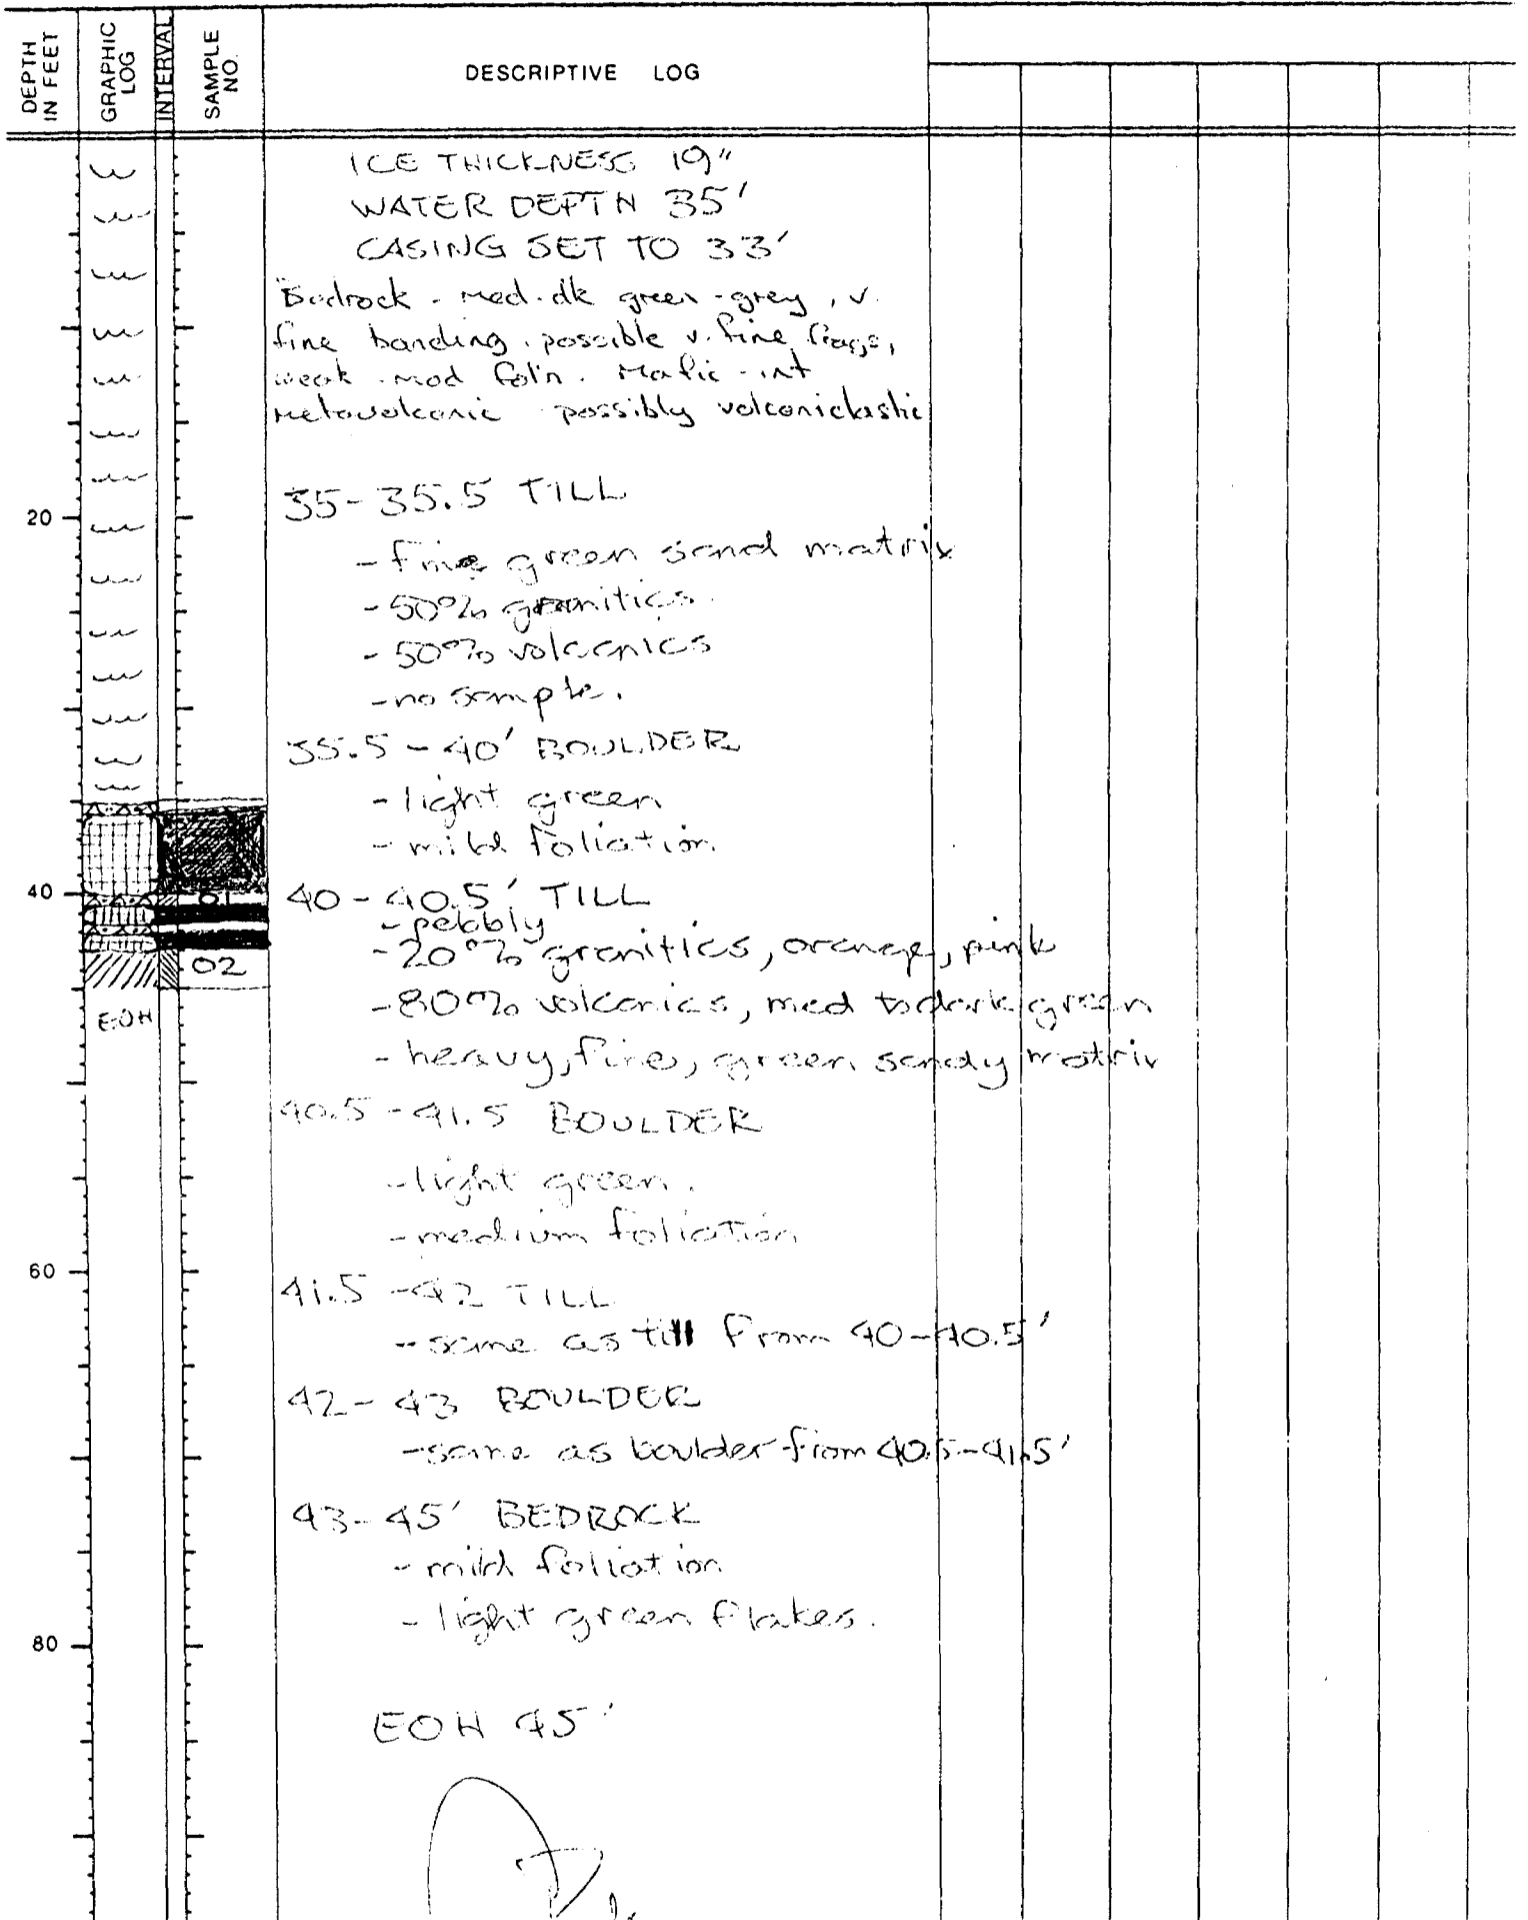 DEPTH IN FEET
GRAPHIC LOG
INTERVAL
SAMPLE NO.
DESCRIPTIVE LOG
ICE THICKNESS 19"
WATER DEPTH 35'
CASING SET TO 33'
Bedrock - med-dk green-grey, v.
fine banding, possible v. fine frags,
weak-mod fol'n. Mafic-int
metavolcanic possibly volcaniclastic
35-35.5 TILL
20
- fine green sand matrix
- 50% granitics.
- 50% volcanics
- no sample.
35.5 - 40' BOULDER
- light green
- mild foliation
40
01
40-40.5' TILL
- pebbly
- 20% granitics, orange, pink
02
- 80% volcanics, med to dark green
EOH
- heavy, fine, green sandy matrix
40.5 - 41.5 BOULDER
- light green.
- medium foliation
60
41.5 - 42 TILL
- same as till from 40-40.5'
42 - 43 BOULDER
- same as boulder from 40.5-41.5'
43-45' BEDROCK
- mild foliation
- light green flakes.
80
EOH 45'